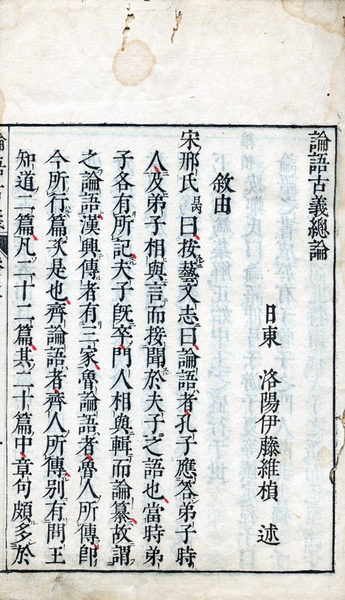 論語古義總論
日東 洛陽伊藤維楨 述
敘由
宋邢氏昺曰按藝文志曰論語者孔子應答弟子時
人及弟子相與言而接聞於夫子之語也當時弟
子各有所記夫子既卒門人相與輯而論纂故謂
之論語漢興傳者有三家魯論語者魯人所傳即
今所行篇次是也齊論語者齊人所傳別有問王
知道二篇凡二十二篇其二十篇中章句頗多於